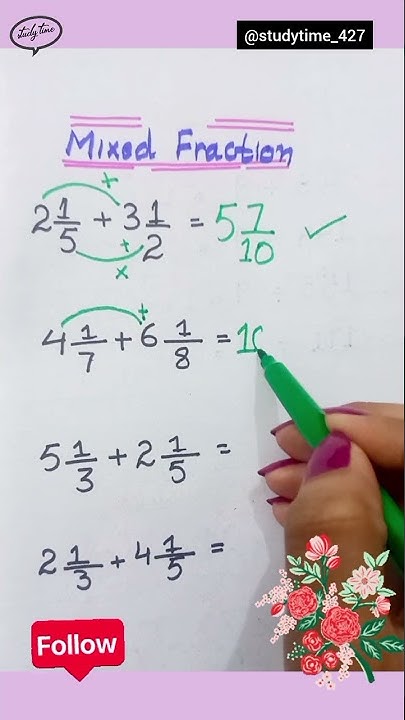 study time
@studytime_427
Mixed Fraction
2 1/5 + 3 1/2 = 5 7/10 ✓
+
+
x
4 1/7 + 6 1/8 = 10
+
5 1/3 + 2 1/5 =
2 1/3 + 4 1/5 =
Follow